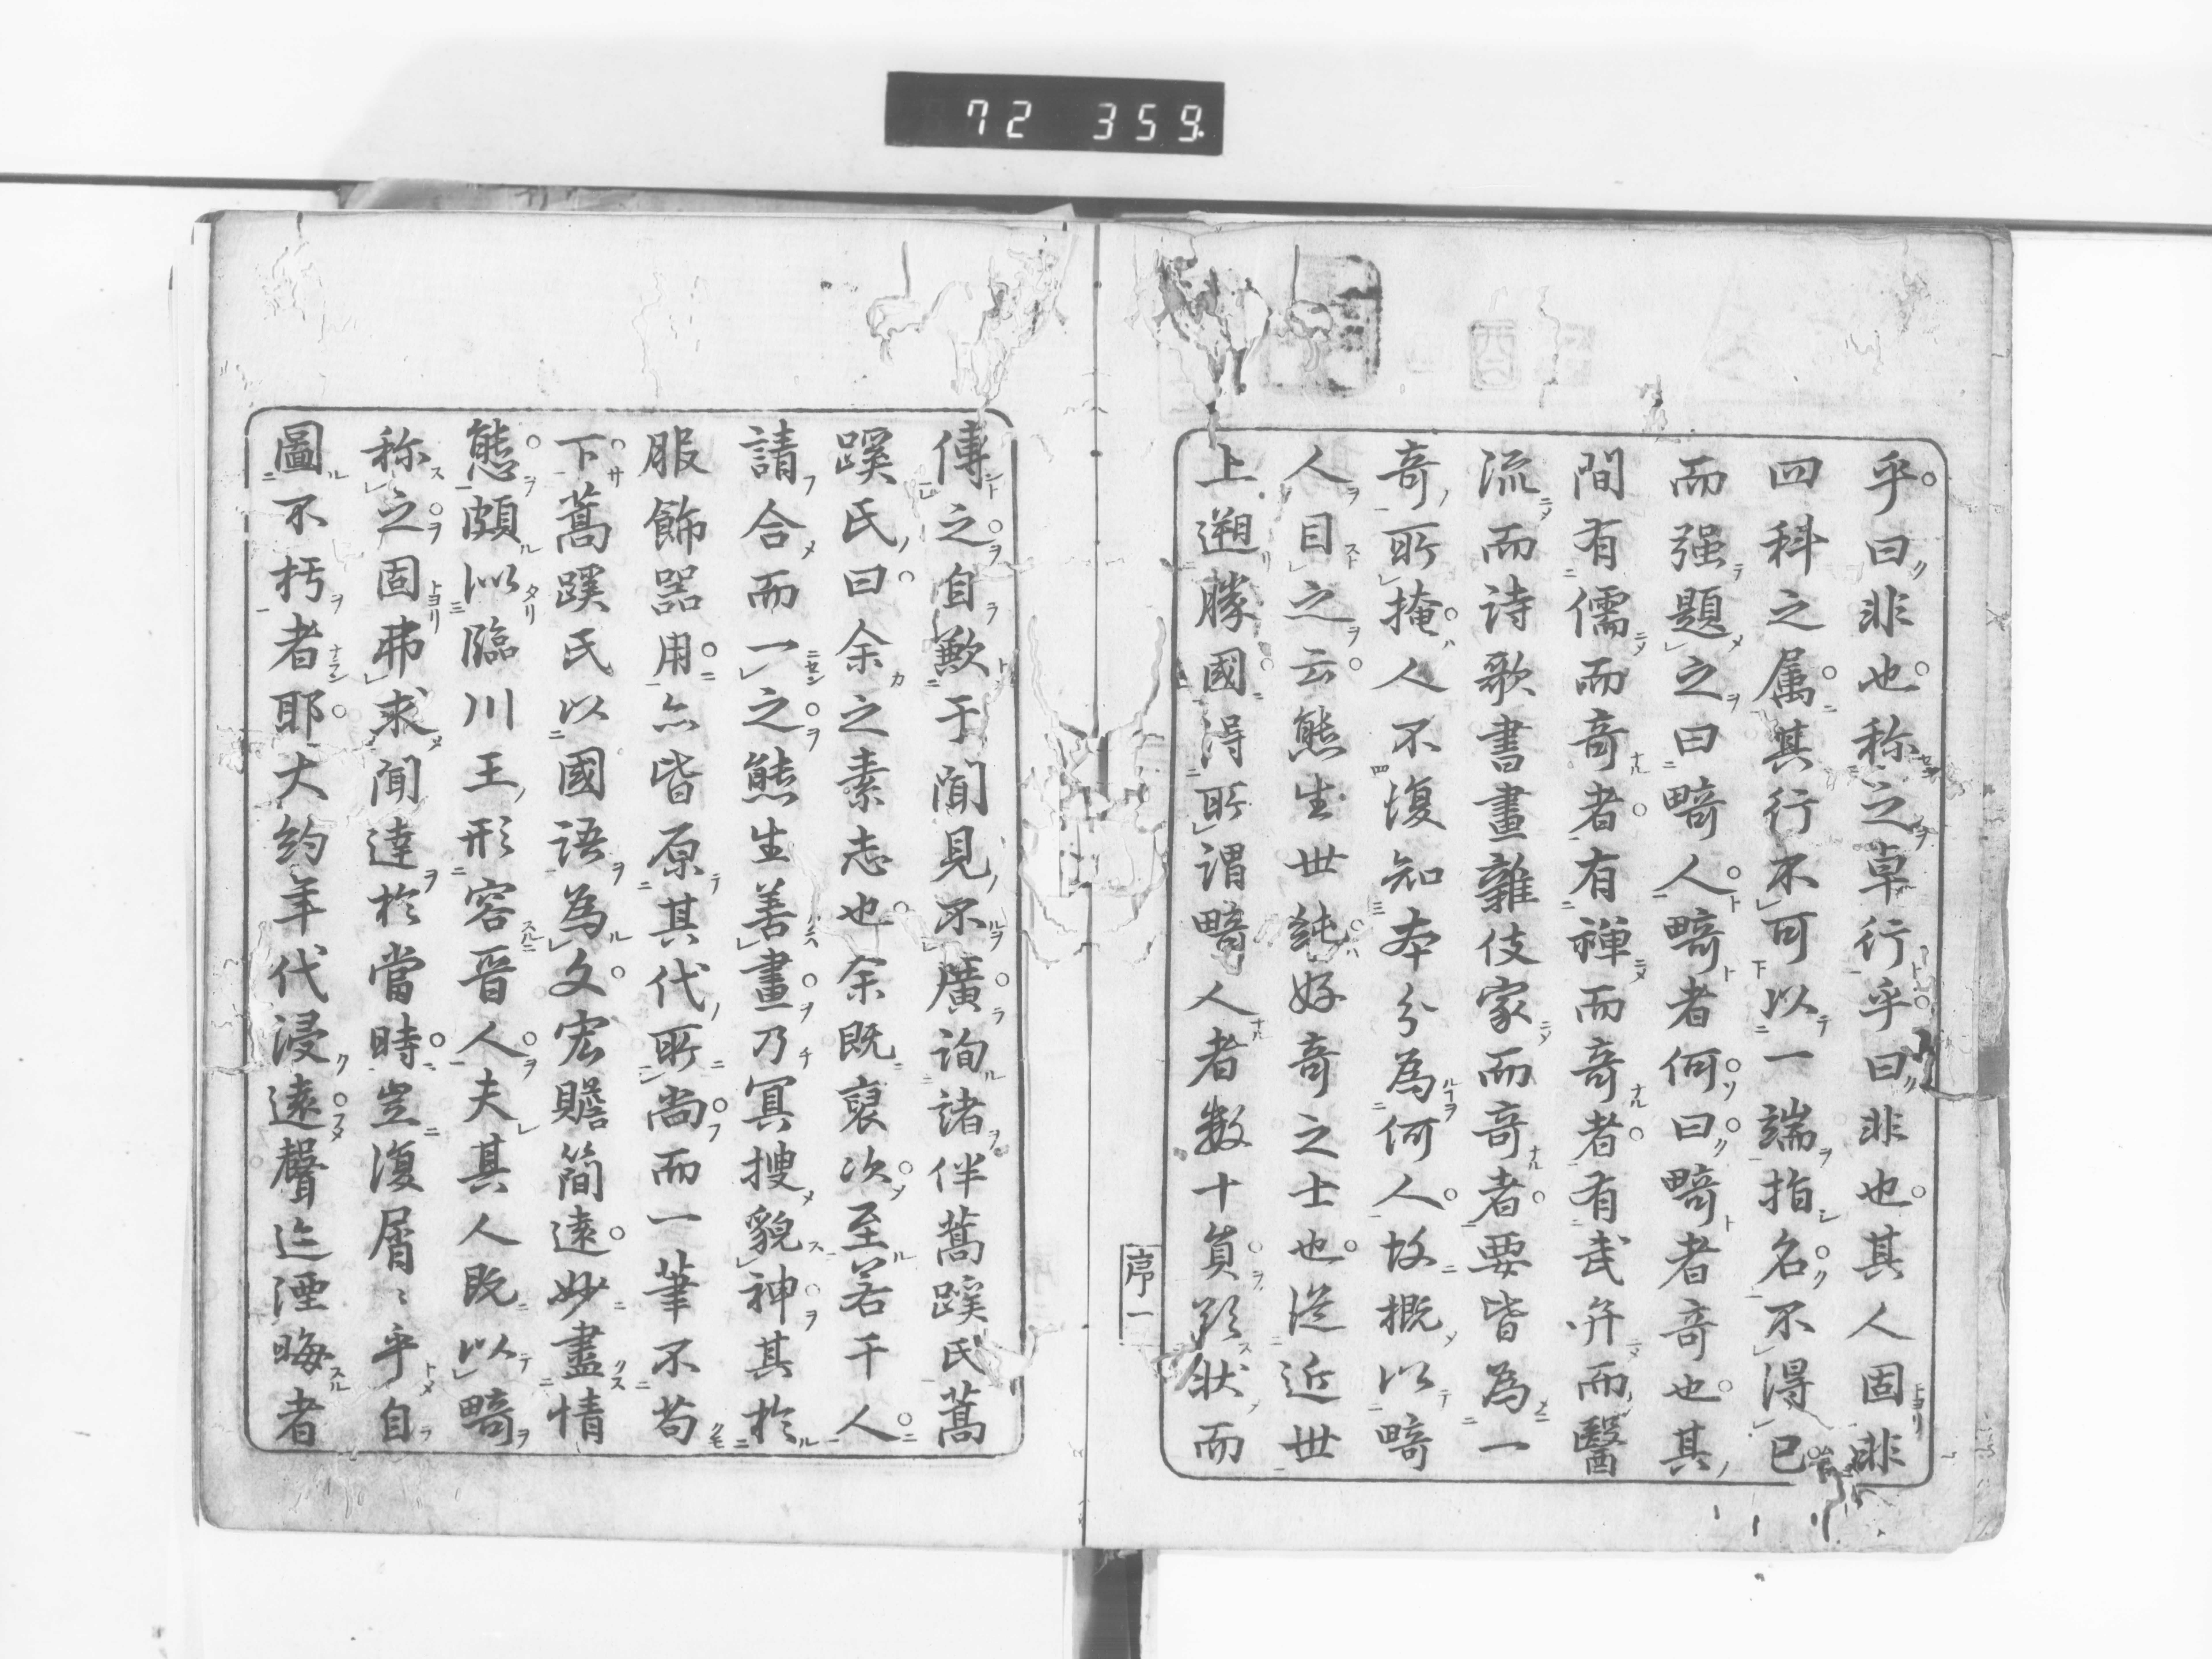 72 359
乎曰非也称之卓行乎曰非也其人固非
四科之属其行不可以一端指名不得已
而强題之曰畸人畸者何曰畸者奇也其
間有儒而奇者有禅而奇者有武弁而醫
流而詩歌書畫雜伎家而奇者要皆為一
奇所掩人不復知本分為何人故概以畸
人目之云熊生世純好奇之士也従近世
上遡勝國得所謂畸人者数十員欵状而
序一
傳之自歉于聞見不廣詢諸伴蒿蹊氏蒿
蹊氏曰余之素志也余既裒次至若干人
請合而一之熊生善畫乃冥搜貌神其於
服飾器用亦皆原其代所尚而一筆不苟
下蒿蹊氏以國語為文宏贍簡遠妙盡情
態頗似臨川王形容晋人夫其人既以畸
称之固弗求聞達於當時豈復屑〻乎自
圖不朽者耶大約年代浸遠聲迹湮晦者